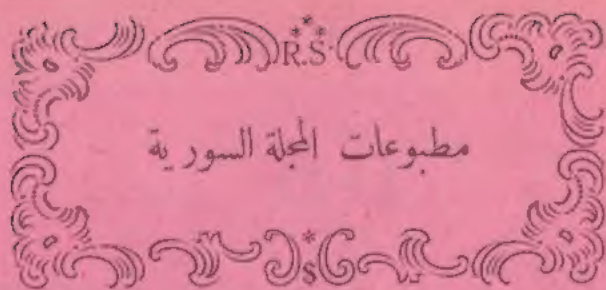 R.S.
مطبوعات المجلة السورية
S